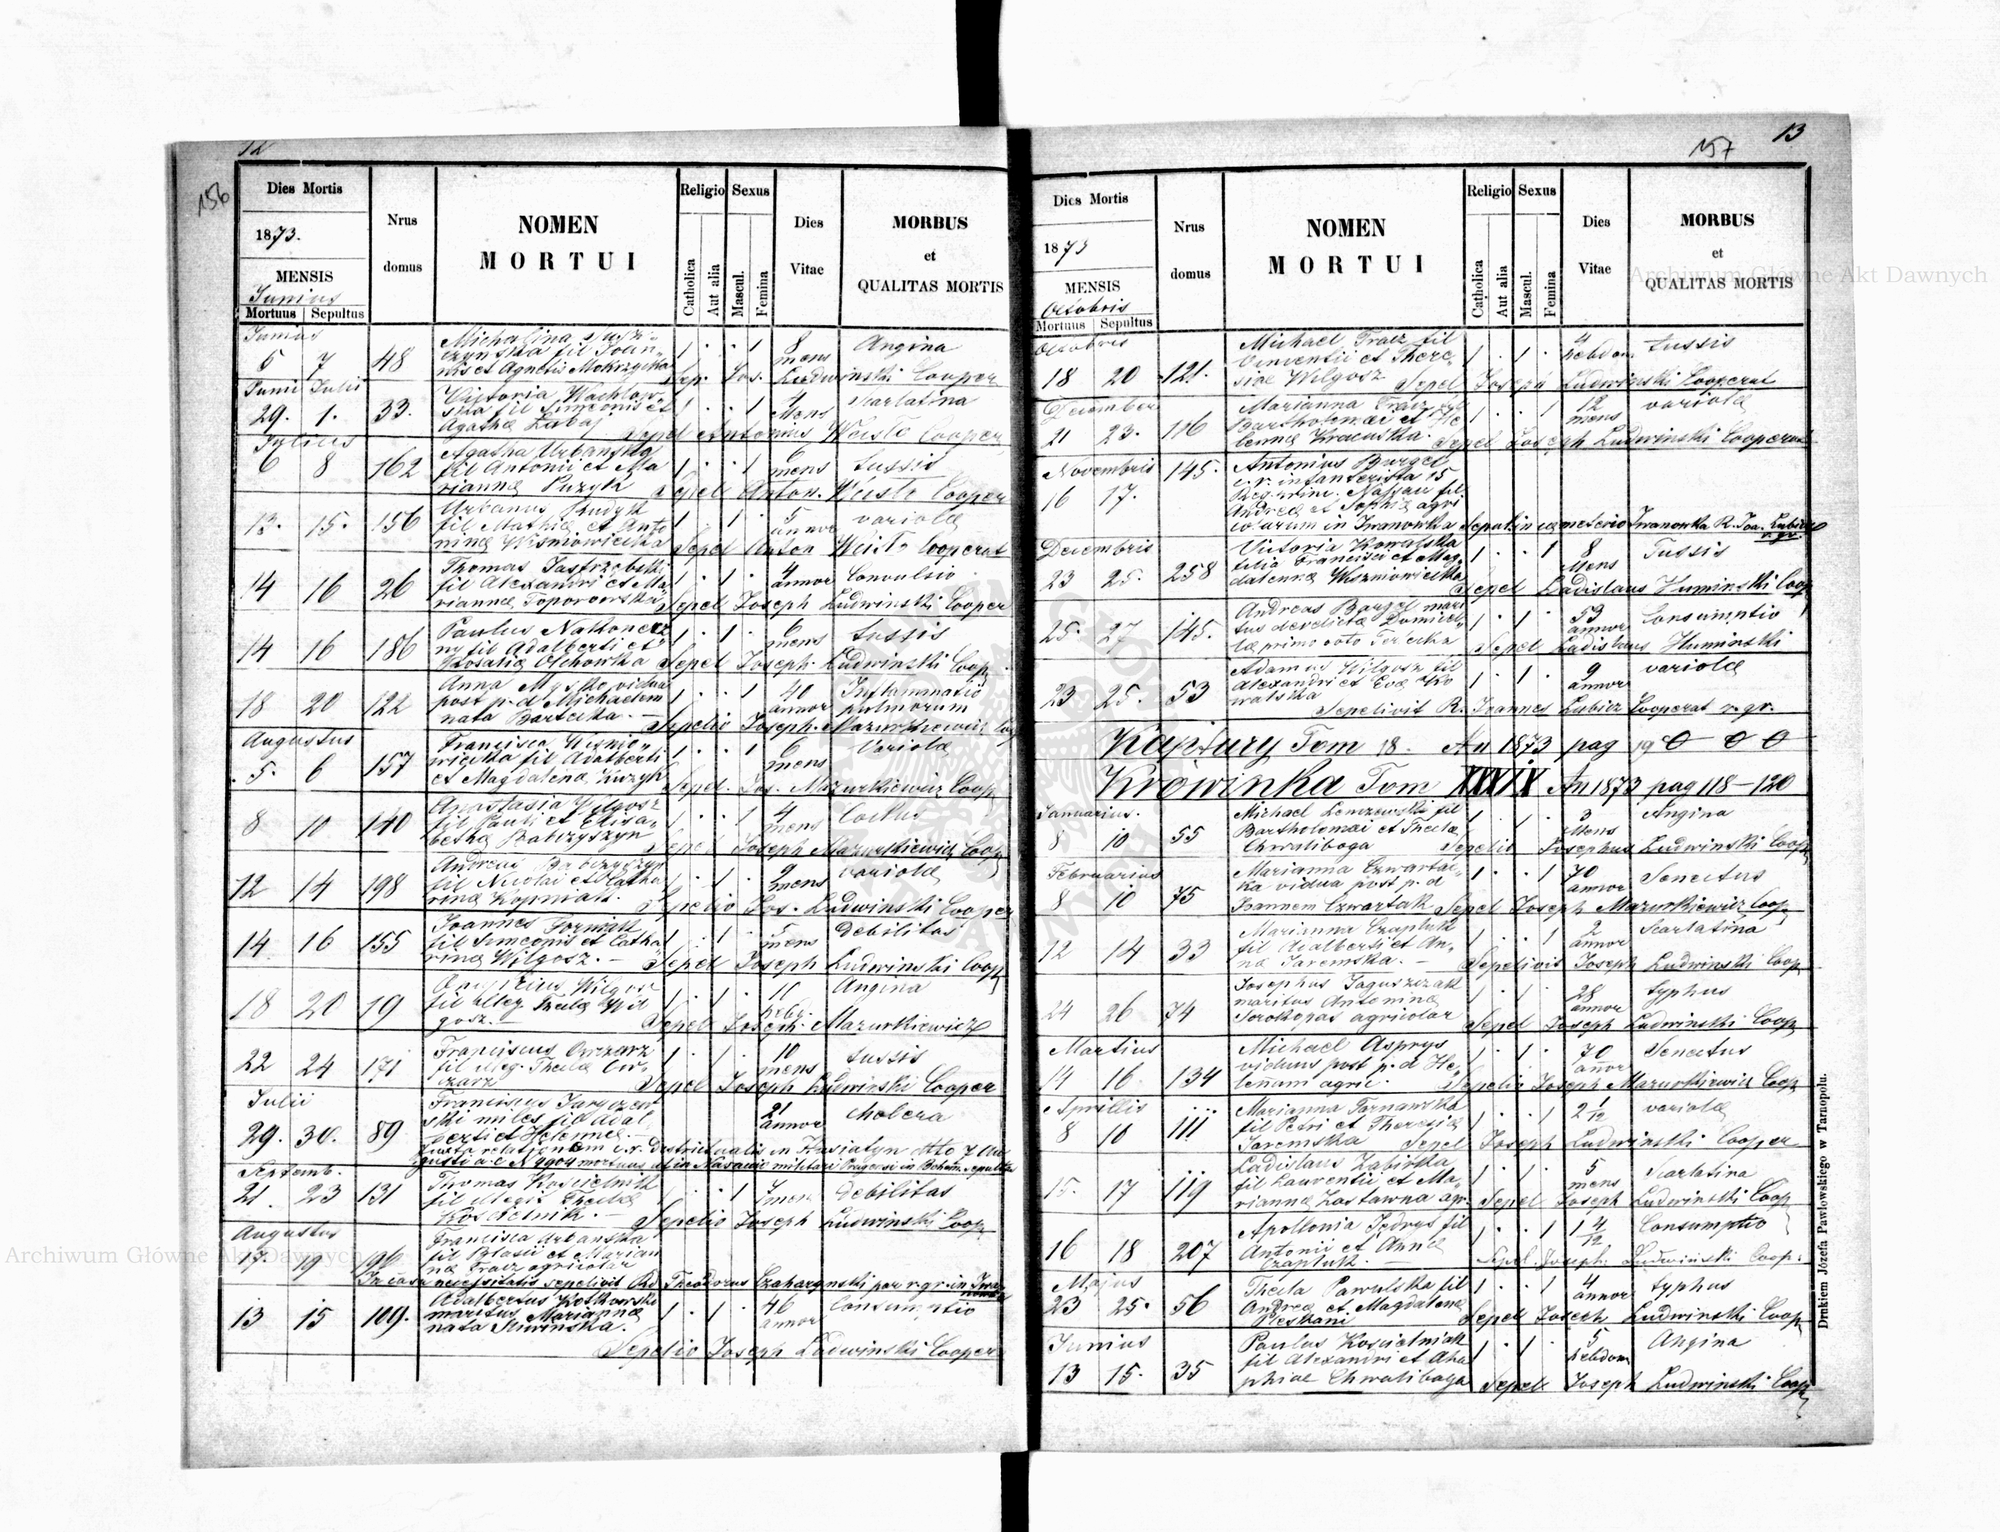 12
156
Dies Mortis
1873.
MENSIS
Junius
Mortuus Sepultus
Nrus domus
NOMEN
MORTUI
Religio
Catholica
Aut alia
Sexus
Mascul.
Femina
Dies
Vitae
MORBUS
et
QUALITAS MORTIS
Junius
5 7 48 Michalina
fil Joan-
nis et Agnetis Mokrzycka
1 . . 1 8 mens Angina
Sep. Jos. Ludwinski Cooper
Junii Julii
29. 1. 33. Victoria
fil Simeonis et
Agatha
1 . . 1 4 Mens Scarlatina
Sepel Antonius Weiste Cooper
Julius
6 8 162 Agatha Urbanska
fil Antonii et Ma
rianna Puzyk
1 . . 1 6 mens tussis
Sepel Anton. Weiste Cooper
13. 15. 156 Urbanus Rudyk
fil Mathia et Anto
nina Wisniowiecka
1 . 1 . 5 annor variola
Sepel Anton Weiste Cooperat
14 16 26 Thomas Jastrzebski
fil Alexandri et Ma
rianna Toporowska
1 . 1 . 4 annor Convulsio
Sepel Joseph Ludwinski Cooper
14 16 186 Paulus
ny fil Adalberti et
Rosalia Olchowka
1 . 1 . 6 mens tussis
Sepel Joseph. Ludwinski Coop
18 20 122 Anna vidua
post p. d. Michaelem
nata Bartecka. —
1 . . 1 40 annor Inflammatio
pulmorum
Sepelio Joseph. Mazurkiewicz Coop
Augustus
5. 6 157 Francisca Wisnio-
wiecka fil Adalberti
et Magdalena Puzyk
1 . . 1 6 mens Variola
Sepel. Jos. Mazurkiewicz Coop
8 10 140 Anastasia Wilgosz
fil Pauli et Elisa-
betha Babczyszyn
1 . . 1 4 mens
Sepel Joseph Mazurkiewicz Coop
12 14 198 Andreas Babczyszyn
fil Nicolai et Catha
rina
1 . 1 . 9 mens variola
Sepelio Jos. Ludwinski Cooper
14 16 155 Joannes
fil Simeonis et Catha
rina Wilgosz. —
1 . 1 . 5 mens debilitas
Sepel Joseph Ludwinski Coop
18 20 19 Wilgosz
fil illeg Thecla Wil
gosz. —
1 . 1 . Angina
Sepel Joseph. Mazurkiewicz
22 24 171 Franciscus Owczarz
fil illeg. Thecla Ow
czarz
1 . 1 . 10 mens tussis
Sepel Joseph Ludwinski Cooper
Julii
29. 30. 89 Franciscus
ski miles fil Adal
berti et Helenna. —
21 annor Cholera
Juxta relationem c. r. Districtualis in Husiatyn dtto 7 Au
gusti a. c. N 9904 mortuus
Septemb.
21. 23 131 Thomas Koscielnik
fil illegit Thecla
Koscielnik. —
7 men debilitas
Sepelio Joseph Ludwinski Coop
Augustus
17. 19 196 Francisca Urbanska
fil Blasii et Marian
na Tracz agricolar
In casu necessitatis sepelivit Rd. Theodorus par r. gr. in Iwa
nowka
13 15 109. Adalbertus Kotkowski
maritus Marianna
nata
1 . 1 . 46 annor Consumptio
Sepelio Joseph Ludwinski Cooper
13
157
Dies Mortis
1873
MENSIS
Octobris
Mortuus Sepultus
Nrus domus
NOMEN
MORTUI
Religio
Catholica
Aut alia
Sexus
Mascul.
Femina
Dies
Vitae
MORBUS
et
QUALITAS MORTIS
Octobris
18 20 121. Michael Tracz fil
Vincentii et There-
siae Wilgosz
1 . 1 . 4 hebdom tussis
Sepel Joseph Ludwinski Cooperat
December
21 23. 116 Marianna Tracz fil
Bartholomaei et He
lenna
1 . . 1 12 mens variola
Sepel Joseph Ludwinski Cooperat
Novembris
16 17. 145. Antonius Burgel
c. r. infanterista 15
Regimine. Nassau fil.
Andrea et Sophia agri
colarum in Iwanowka Sepult in cametério Iwanowka R. Joa. Lubicz
r. gr.
Decembris
23 25. 258 Victoria Kowalska
filia Francisci et Mag
dalenna Wiszniowiecka
1 . . 1 8 Mens Tussis
Sepel Ladislaus Huminski Coop
25. 27 145. Andreas mari
tus derelicta Domicel-
la primo voto
1 . 1 . 53 annor Consumptio
Sepel Ladislaus Huminski
23 25. 53 Adamus Wilgosz fil
Alexandri et Eva Ko
walska
1 . 1 . 9 annor variola
Sepelivit R. Joannes Lubicz Cooperat r. gr.
Kapury Tom 18. An 1873 pag 19 0 0 0
Krowinka Tom XXXIX An 1873 pag 118-120
Januarius.
8 10 55 Michael fil
Bartholomai et Thecla
Chwaliboga
1 . 1 . 3 Mens Angina
Sepelio Josephus Ludwinski Coop
Februarius
8 10 75 Marianna Czwartac-
ka vidua post p. d
Joannem Czwartak
1 . . 1 70 annor Senectus
Sepel Joseph Mazurkiewicz Coop
12 14 33 Marianna Czapluk
fil Adalberti et An-
na Jaremska. —
1 . . 1 2 annor Scarlatina
Sepelivit Joseph Ludwinski Coop
24 26 74 Josephus Jaguszczak
maritus Antonina
Sorokopas agricolar
1 . 1 . 28 annor typhus
Sepel Joseph Ludwinski Coop
Martius
14 16. 134 Michael Asprys
viduus post p. d He-
lennam agric.
1 . 1 . 70 annor Senectus
Sepelio Joseph Mazurkiewicz Coop
Aprillis
8 10 111 Marianna Tarnawska
fil Petri et Theresia
Jaremska
1 . . 1 2 1/12 variola
Sepel Joseph Ludwinski Cooper
15. 17 119 Ladislaus
fil Laurentii et Ma-
rianna Zastawna agr.
1 . 1 . 5 mens Scarlatina
Sepel Joseph Ludwinski Coop
16 18 207 Apollonia Jedrys fil
Antonii et Anna
Czapluk. —
1 . . 1 1 4/12 Consumptio
Sepel Joseph. Ludwinski Coop.
Majus
23 25. 56 Thecla Pawulska fil
Andrea et Magdalena
Peskani
1 . . 1 4 annor typhus
Sepel Joseph Ludwinski Coop
Junius
13 15. 35 Paulus Koscielniak
fil Alexandri et Aha
phiae Chwaliboga
1 . 1 . 5 hebdom Angina
Sepel Joseph Ludwinski Coop
Drukiem Józefa Pawłowskiego w Tarnopolu.
Archiwum Główne Akt Dawnych
Archiwum Główne Akt Dawnych